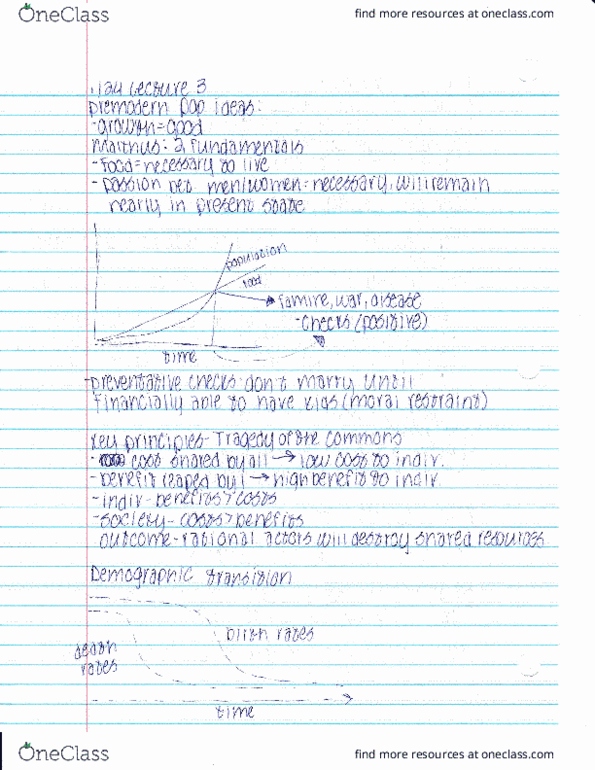 OneClass
find more resources at oneclass.com
1/24 Lecture 3
premodern pop ideas:
-growth=good
Malthus: 2 fundamentals
-food=necessary to live
-passion bet. men/women=necessary, will remain
nearly in present state
population
food
famine, war, disease
-checks (positive)
time
-preventative checks don't marry until
financially able to have kids (moral restraint)
key principles-Tragedy of the commons
- cost shared by all → low cost to indiv.
-benefit reaped by 1 → high benefit to indiv.
-indiv-benefits>costs
-society-costs>benefits
outcome-rational actors will destroy shared resources
Demographic transition
birth rates
death
rates
time
OneClass
find more resources at oneclass.com